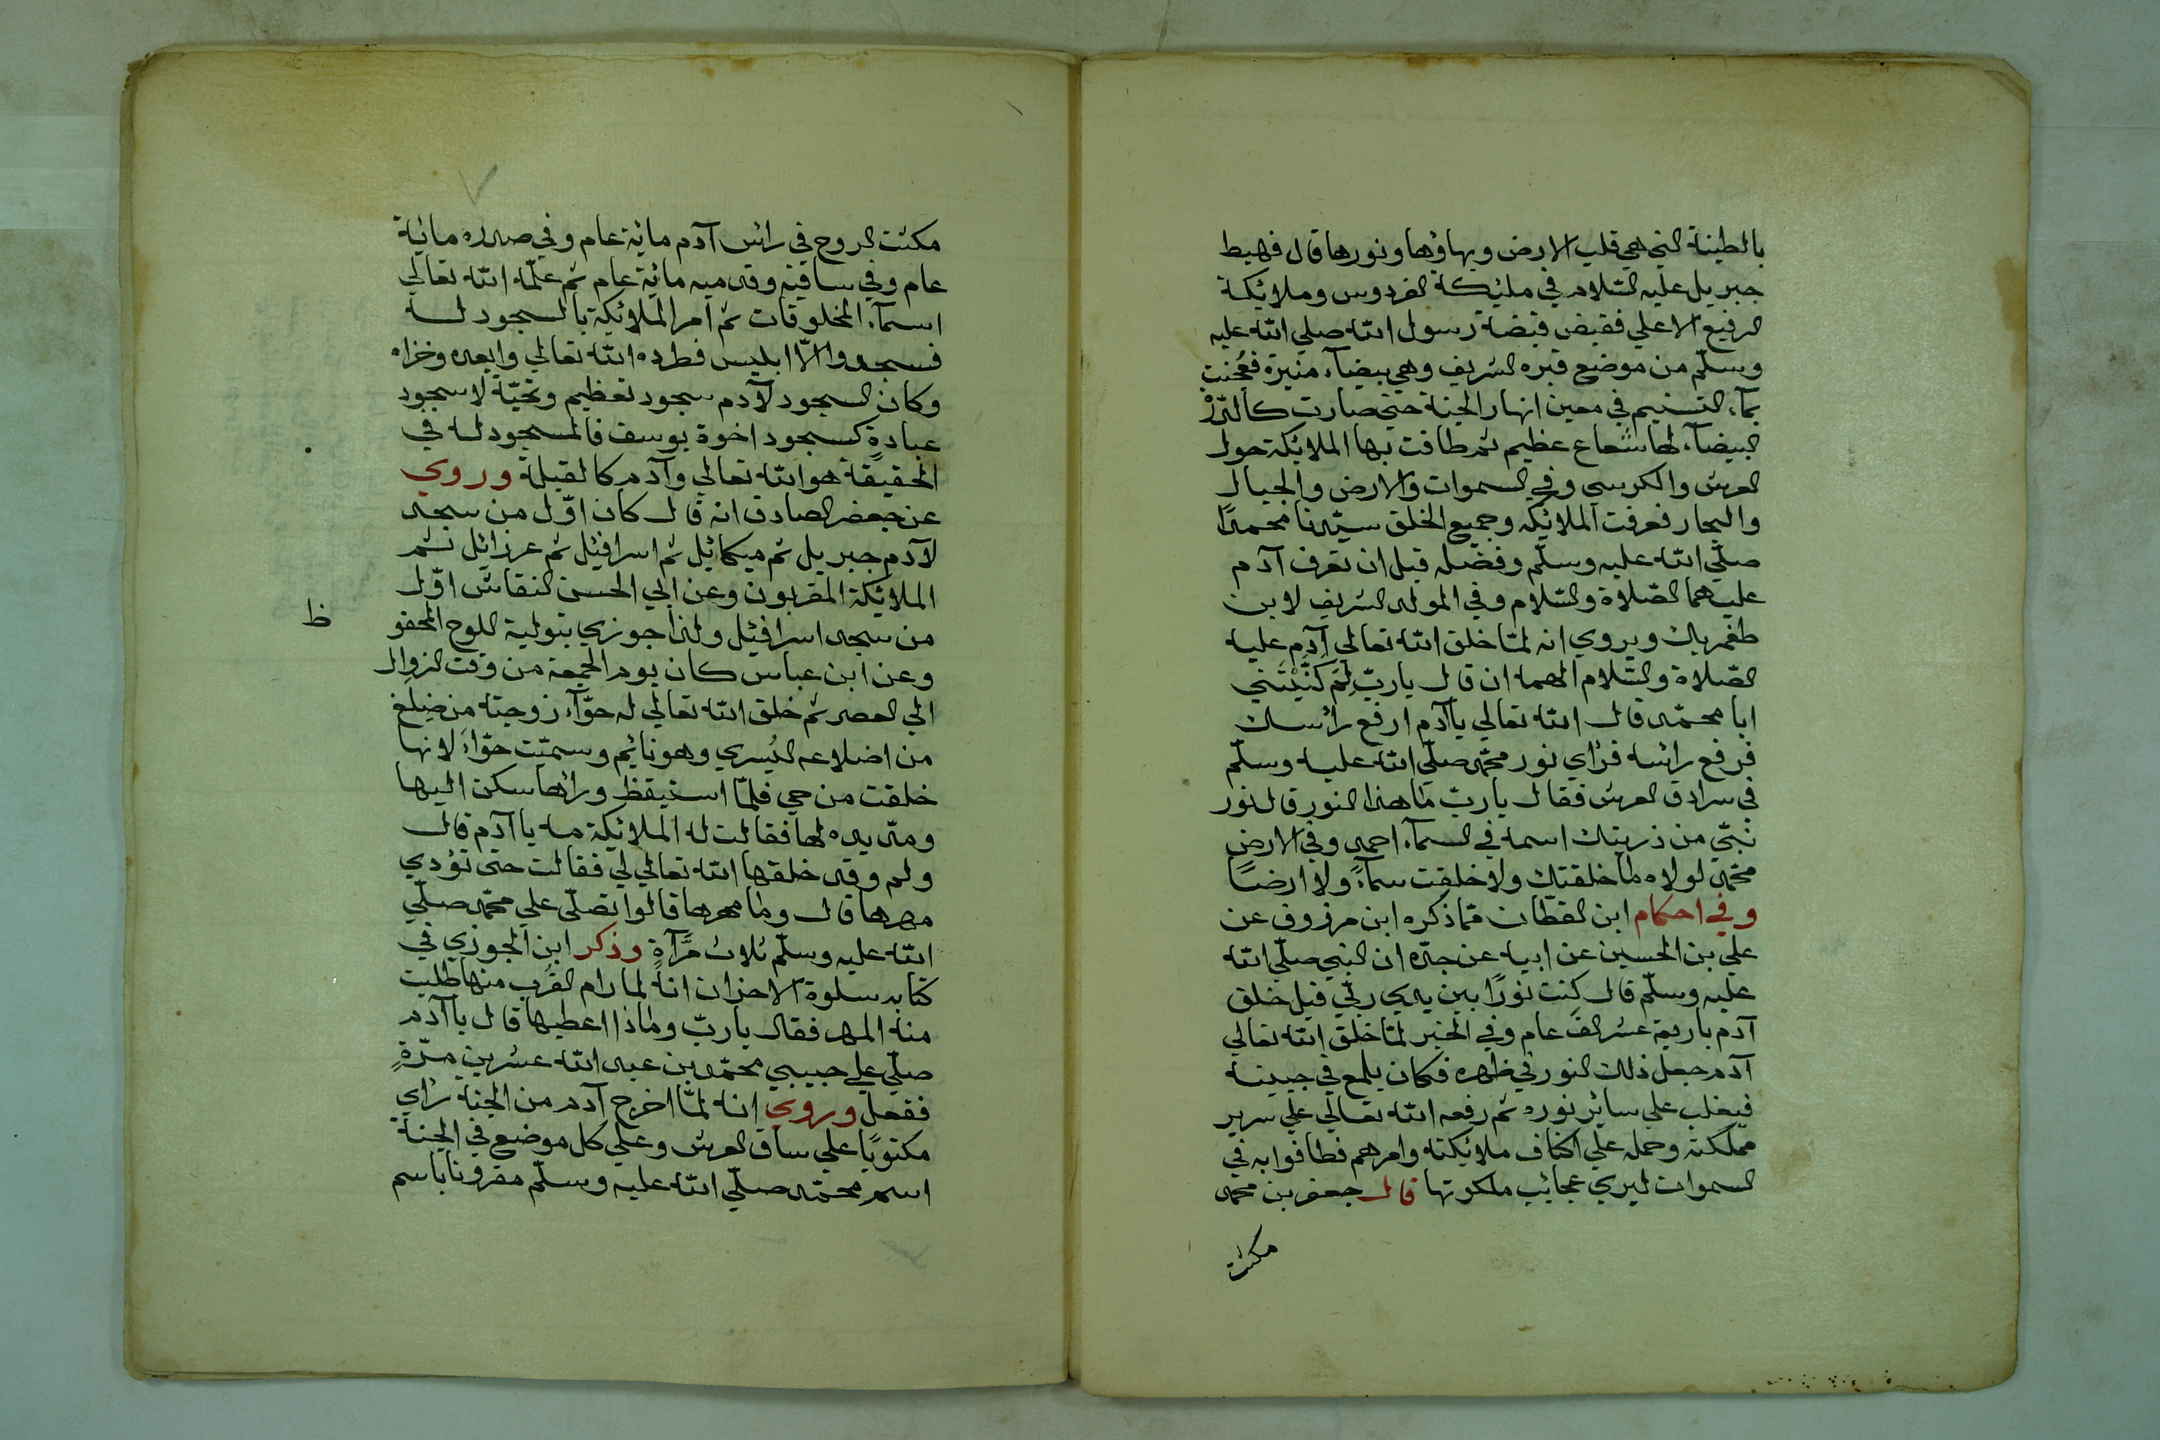 بالطينة التي هي قلب الارض وبهاؤها ونورها قال فهبط
جبريل عليه السّلام في ملئكة الفردوس وملائكة
الرفيع الاعلي فقبض قبضة رسول الله صلي الله عليه
وسلّم من موضع قبره الشريف وهي بيضآء منيرة فعُجنت
بمآء التسنيم في معين انهار الجنة حتي صارت كالدّرّة
البيضآء لها شعاع عظيم ثم طافت بها الملائكة حول
العرش والكرسي وفي السموات والارض والجبال
والبحار فعرفت الملائكه وجميع الخلق سيّدنا محمدًا
صلّي الله عليه وسلّم وفضله قبل ان تعرف آدم
عليهما الصّلاة والسّلام وفي المولد الشريف لابن
طغربك ويروي انه لمّا خلق الله تعالي آدم عليه
الصّلاة والسّلام الهمه ان قال يا ربّ لِمَ كَنَّيْتَني
ابا محمّد قال الله تعالي يا آدم ارفع رائسك
فرفع رائسه فرأي نور محمّد صلّي الله عليه وسلّم
في سرادق العرش فقال يا ربّ ما هذا النور قال نور
نبّي من ذريتك اسمه في السمآء احمد وفي الارض
محمّد لولاه ما خلقتك ولا خلقت سمآءً ولا ارضًا
وفي احكام ابن القطّان ممّا ذكره ابن مرزوق عن
علي بن الحسين عن ابيه عن جدّه ان النبي صلّي الله
عليه وسلّم قال كنت نورًا بين يدي ربّي قبل خلق
آدم باربعة عشر الفَ عام وفي الخبر لمّا خلق الله تعالي
آدم جعل ذلك النور في ظهره فكان يلمع في جبينه
فيغلب علي سائر نوره ثم رفعه الله تعالي علي سرير
مملكته وحمله علي اكتاف ملائكته وامرهم فطافوا به في
السموات ليري عجائب ملكوتها قال جعفر بن محمد
مكثت
مكثت الروح في رائس آدم مائة عام وفي صدره مائة
عام وفي ساقيه وقدميه مائة عام ثم علّمه الله تعالي
اسمآء المخلوقات ثم امر الملائكة بالسجود له
فسجدوا الاّ ابليس فطرده الله تعالي وابعده وخزاه
وكان السجود لآدم سجود تعظيم وتحيّة لا سجود
عبادةٍ كسجود اخوة يوسف فالمسجود له في
الحقيقة هو الله تعالي وآدم كالقبلة وروي
عن جعفر الصادق انه قال كان اوّل من سجد
لآدم جبريل ثم ميكائيل ثم اسرافيل ثم عزرائيل ثم
الملائكة المقربون وعن ابي الحسن النقاش اوّل
من سجد اسرافيل ولذا جوزي بتولية اللوح المحفو
ظ
وعن ابن عباس كان يوم الجمعة من وقت الزوال
الي العصر ثم خلق الله تعالي له حوّآء زوجته من ضِلَعٍ
من اضلاعه اليُسري وهو نائم وسميّت حوّاءَ لانها
خلقت من حي فلمّا استيقظ ورائها سكن اليها
ومدّ يده لها فقالت له الملائكة مه يا آدم قال
ولم وقد خلقها الله تعالي لي فقالت حتي تؤدي
مهرها قال وما مهرها قالوا تصلّي علي محمّد صلّي
الله عليه وسلّم ثلاث مرّآةٍ وذكر ابن الجوزي في
كتابه سلوة الاحزان انهُ لما رام القرب منها طلبت
منه المهر فقال يا ربّ وماذا اعطيها قال يا آدم
صلّي علي حبيبي محمّد بن عبد الله عشرين مرّةٍ
ففعل وروي انه لمّا اخرج آدم من الجنة رأي
مكتوبًا علي ساق العرش وعلي كل موضع في الجنة
اسم محمّد صلّي الله عليه وسلّم مقرونا باسم